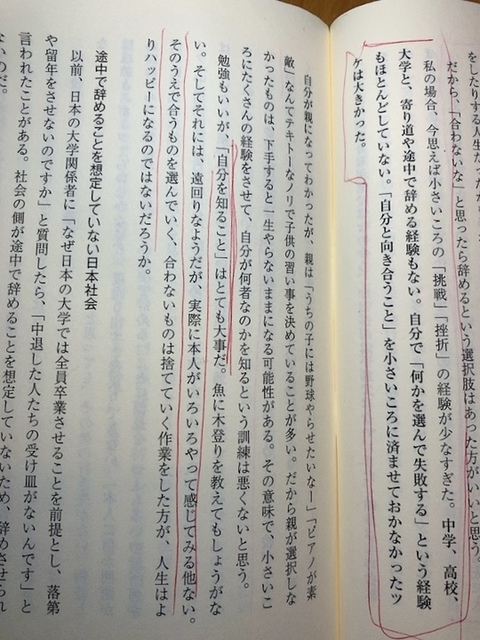 をしたりする人生だ
だから、「合わないな」と思ったら辞めるという選択肢はあった方がいいと思う。
私の場合、今思えば小さいころの「挑戦」「挫折」の経験が少なすぎた。中学、高校、
大学と、寄り道や途中で辞める経験もない。自分で「何かを選んで失敗する」という経験
もほとんどしていない。「自分と向き合うこと」を小さいころに済ませておかなかったツ
ケは大きかった。
自分が親になってわかったが、親は「うちの子には野球やらせたいなー」「ピアノが素
敵」なんてテキトーなノリで子供の習い事を決めていることが多い。だから親が選択しな
かったものは、下手すると一生やらないままになる可能性がある。その意味で、小さいこ
ろにたくさんの経験をさせて、自分が何者なのかを知るという訓練は悪くないと思う。
勉強もいいが、「自分を知ること」はとても大事だ。魚に木登りを教えてもしょうがな
い。そしてそれには、遠回りなようだが、実際に本人がいろいろやって感じてみる他ない。
そのうえで合うものを選んでいく、合わないものは捨てていく作業をした方が、人生はよ
りハッピーになるのではないだろうか。
途中で辞めることを想定していない日本社会
以前、日本の大学関係者に「なぜ日本の大学では全員卒業させることを前提とし、落第
や留年をさせないのですか」と質問したら、「中退した人たちの受け皿がないんです」と
言われたことがある。社会の側が途中で辞めることを想定していないため、辞めさせられ
ないのだ。